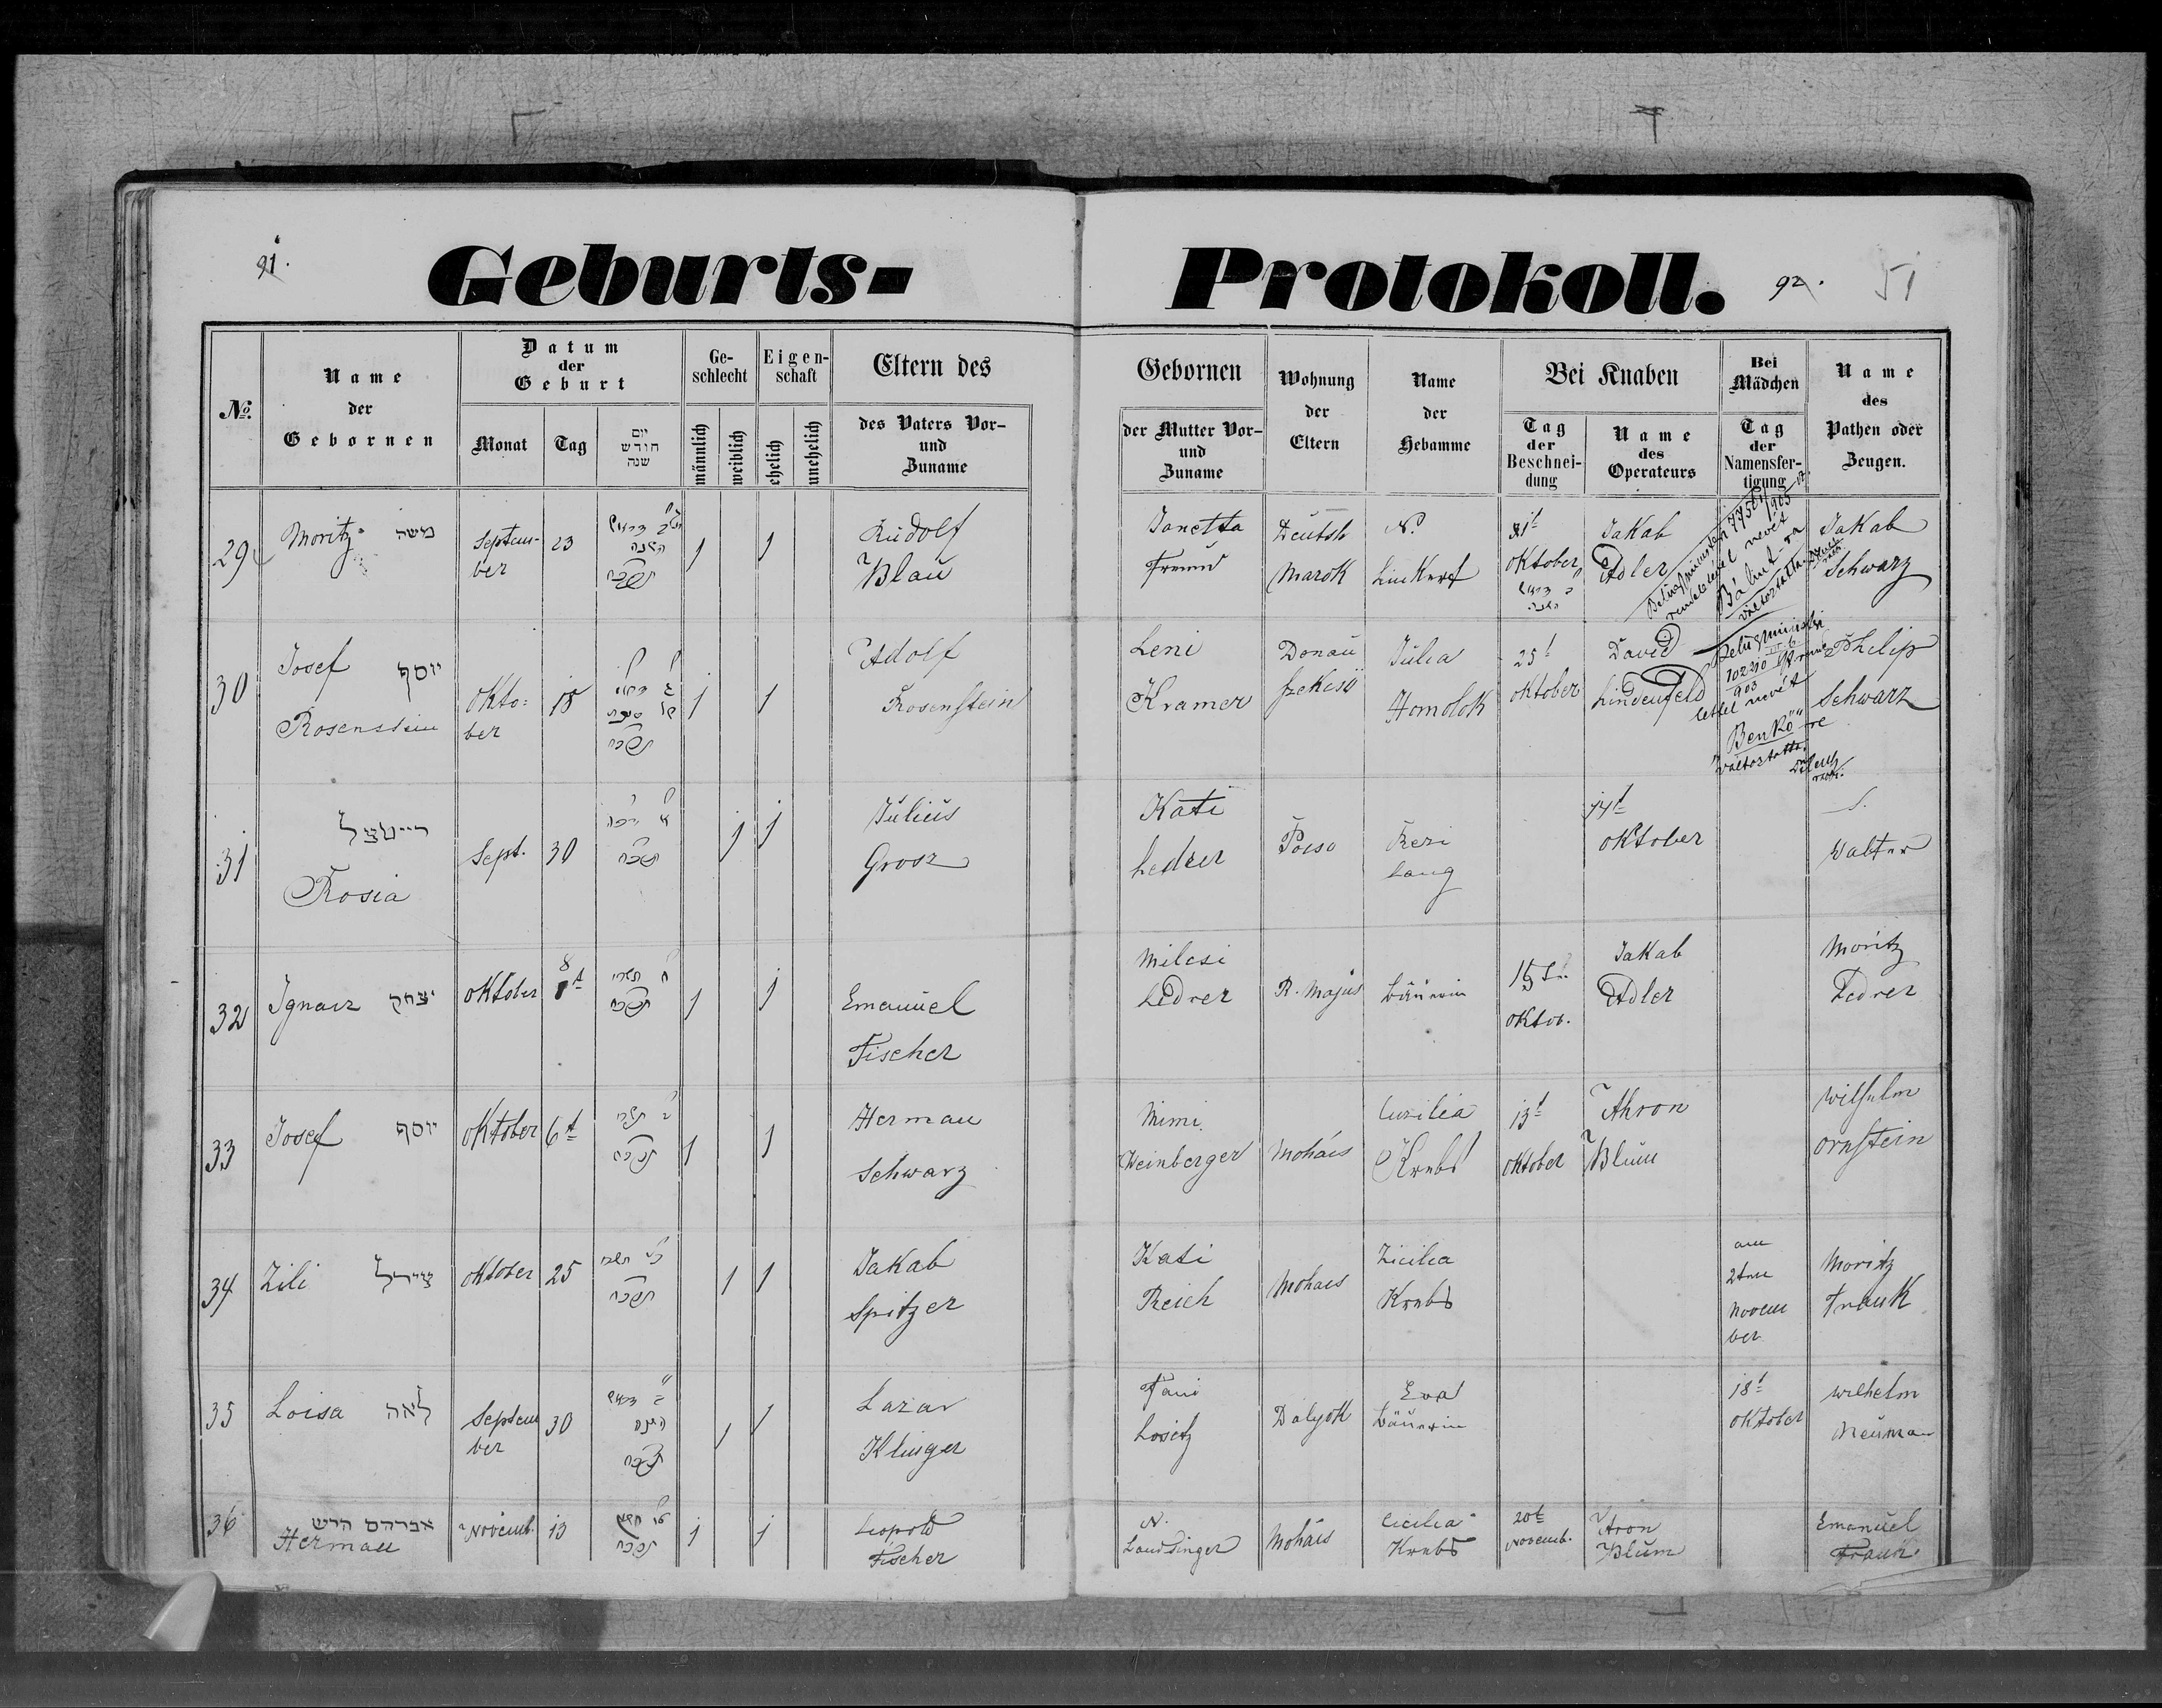 91.
Geburts-
Protokoll.
92.
51
No.
Name
der
Gebornen
Datum
der
Geburt
Monat
Tag
יום
חודש
שנה
Ge-
schlecht
männlich
weiblich
Eigen-
schaft
ehelich
unehelich
Eltern des
des Vaters Vor-
und
Zuname
Gebornen
der Mutter Vor-
und
Zuname
Wohnung
der
Eltern
Name
der
Hebamme
Bei Knaben
Tag
der
Beschnei-
dung
Name
des
Operateurs
Bei
Mädchen
Tag
der
Namensfer-
tigung
Name
des
Pathen oder
Zeugen.
29
Moritz משה
Septem-
ber
23
1
1
Rudolf
Blau
Janetta
Freund
Deutsh
Marok
N.
Oktober
Jakab
Adler
Belügyminiszteri 77561/905
rendelettel nevét
Bálint-ra
változtatta
Jakab
Schwarz
30
Josef יוסף
Rosenstein
Okto-
ber
15
1
1
Adolf
Rosenstein
Leni
Kramer
Donau
Szekcsö
Julia
Homolok
25t
Oktober
David
Lindenfeld
Belügyminiszteri
102390
903
lettel nevét
"Benkö"-re
változtatta.
Philip
Schwarz
31
רייטצל
Rosia
Sept.
30
1
1
Julius
Grosz
Kati
Ledrer
Resi
Lang
14t
Oktober
S.
Walter
32
Ignacz יצחק
Oktober
8t
1
1
Emanuel
Fischer
Milcsi
Ledrer
R. Majus
Bäuerin
15t
Oktob.
Jakab
Adler
Moritz
Ledrer
33
Josef יוסף
Oktober
6t
1
1
Herman
Schwarz
Mimi
Weinberger
Mohács
Krebs
13t
Oktober
Ahron
Blum
Wilhelm
Ornstein
34
Zili צירל
Oktober
25
1
1
Jakab
Spitzer
Kati
Reich
Mohacs
Zicilia
Krebs
am
2ten
Novem
ber
Moritz
Frank
35
Loisa לאה
Septem
ber
30
1
1
Lazar
Klinger
Fani
Lositz
Dalyok
Eva
Bäuerin
18t
Oktober
Wilhelm
Neuman
36
אברהם הרש
Herman
Novemb.
13
1
1
Leopold
Fischer
N.
Landsinger
Mohács
Cicilia
Krebs
20t
Novemb.
Aron
Blum
Emanuel
Frank